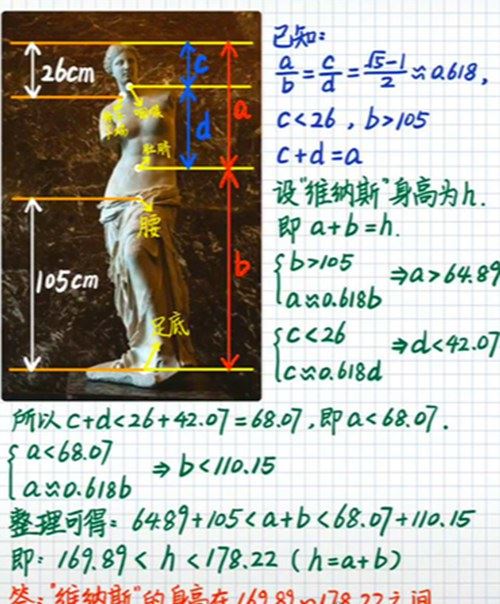 26cm
c
a
咽喉
d
肚脐
腰
105cm
b
足底
已知:
a/b=c/d=(√5-1)/2≈0.618,
c<26, b>105
c+d=a
设"维纳斯"身高为h.
即 a+b=h.
{b>105
a≈0.618b ⇒a>64.89
{c<26
c≈0.618d ⇒d<42.07
所以 c+d<26+42.07=68.07,即a<68.07.
{a<68.07
a≈0.618b ⇒ b<110.15
整理可得: 64.89+105<a+b<68.07+110.15
即: 169.89<h<178.22 (h=a+b)
答:"维纳斯"的身高在169.89~178.22之间